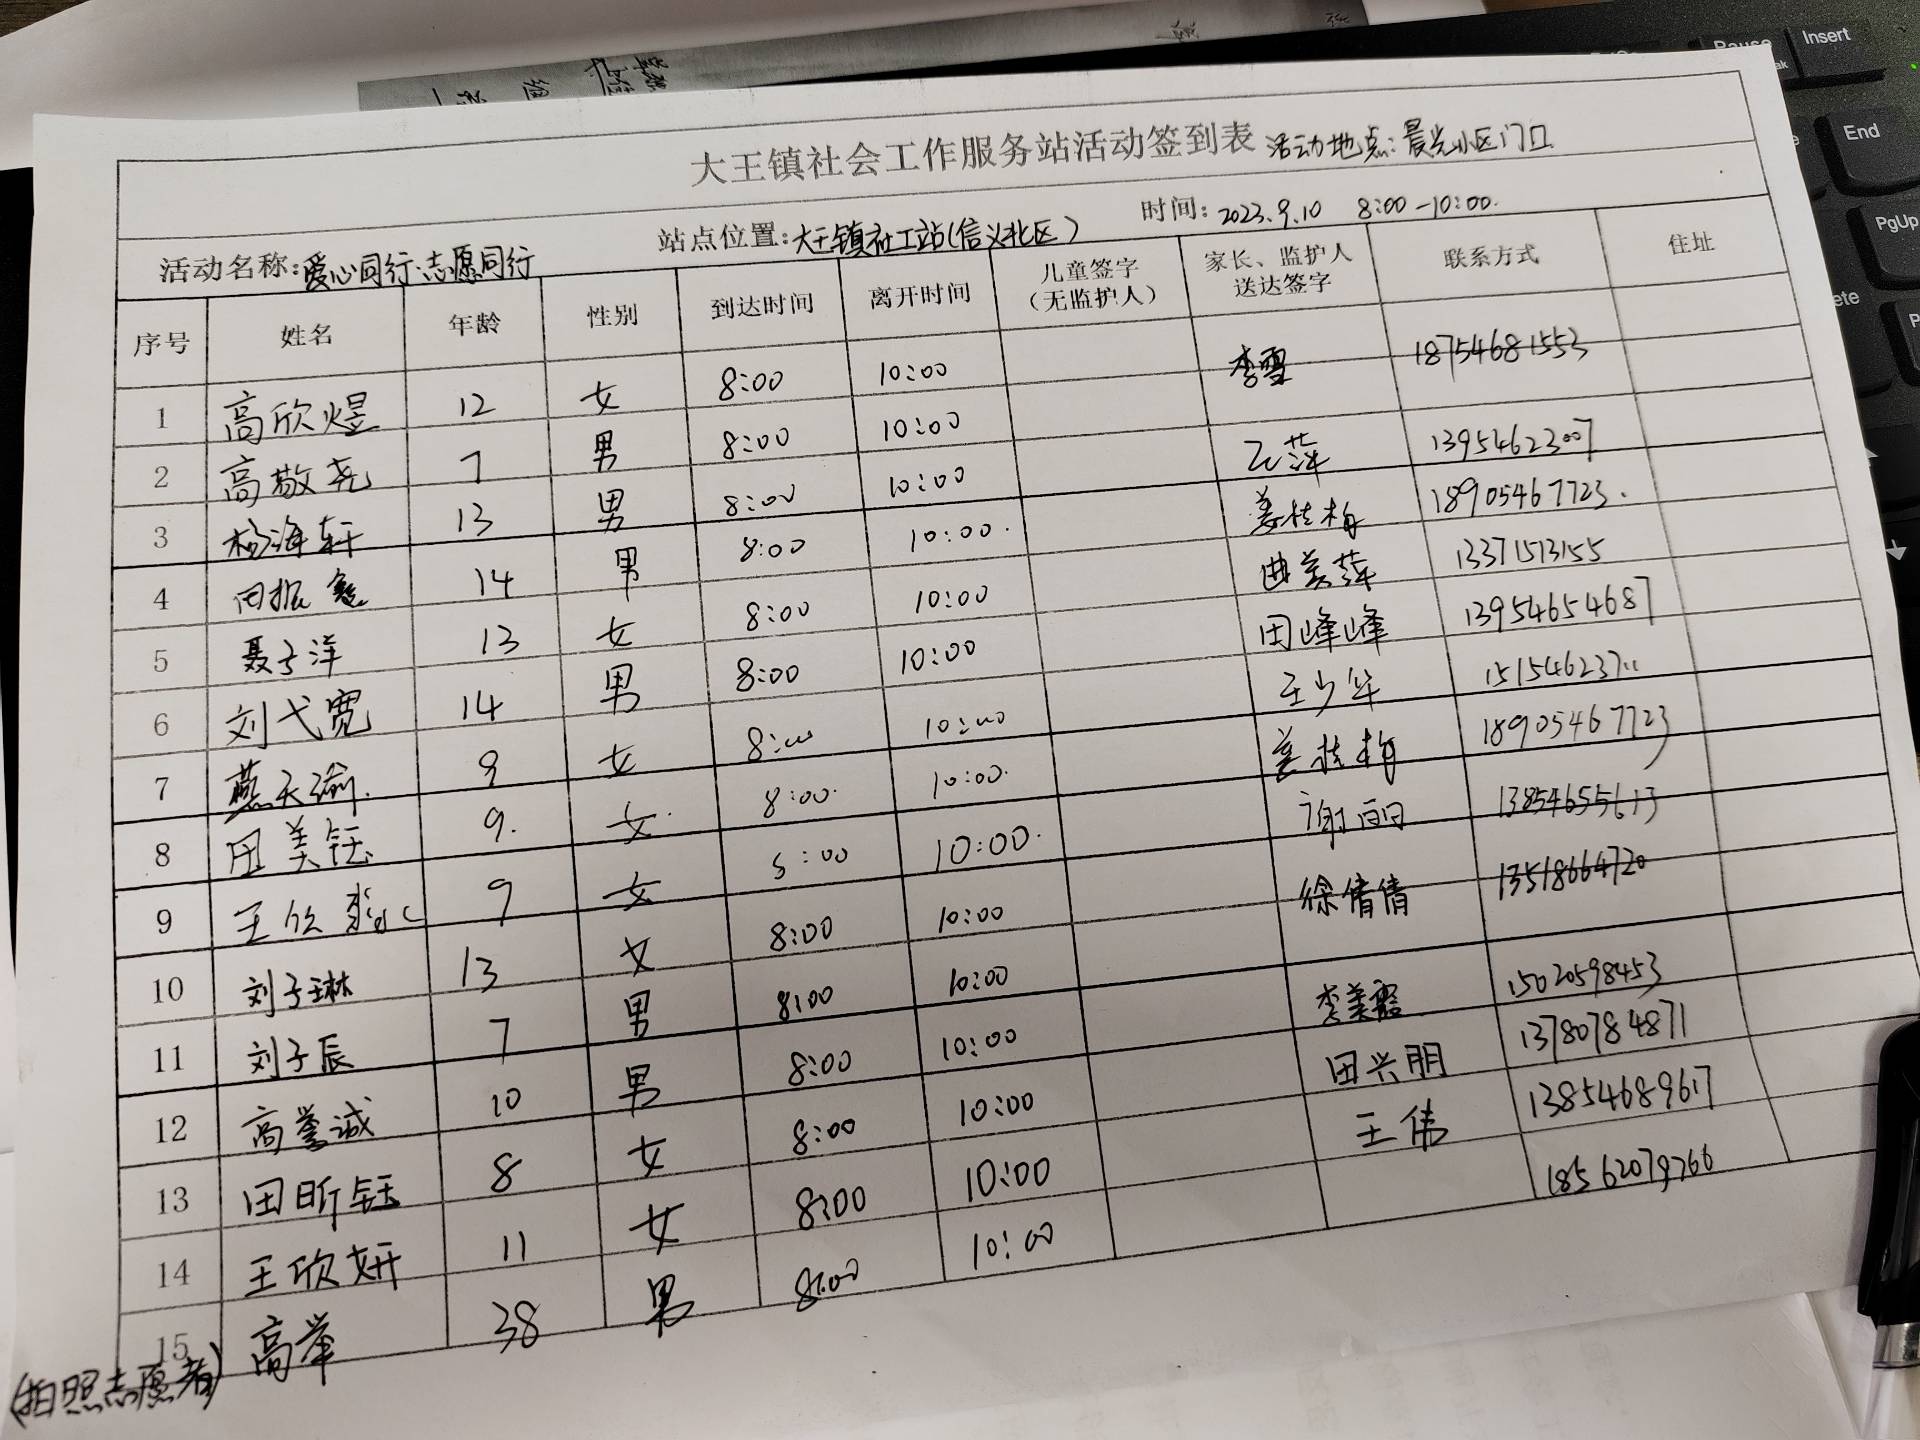 大王镇社会工作服务站活动签到表 活动地点:晨光小区门口
活动名称:爱心同行·志愿同行 站点位置:大王镇社工站(信义北区) 时间:2023.9.10 8:00-10:00.
序号 姓名 年龄 性别 到达时间 离开时间 儿童签字(无监护人) 家长、监护人送达签字 联系方式 住址
1 高欣煜 12 女 8:00 10:00 李雪 18754681553
2 高敬尧 7 男 8:00 10:00 萍 13954623007
3 杨海轩 13 男 8:00 10:00 姜桂梅 18905467723.
4 田振 14 男 8:00 10:00. 曲美萍 13371513155
5 聂子洋 13 女 8:00 10:00 田峰峰 13954654687
6 刘弋宽 14 男 8:00 10:00 王少华 15154623711
7 燕天瑜. 9 女 8:00 10:00 姜桂梅 18905467723
8 田美钰 9. 女 8:00. 10:00. 谢丽 13854655613
9 王欣 9 女 8:00 10:00. 徐倩倩 13518664720
10 刘子琳 13 女 8:00 10:00
11 刘子辰 7 男 8:00 10:00 李美霞 15020598453
12 高誉诚 10 男 8:00 10:00 田兴朋 13780784871
13 田昕钰 8 女 8:00 10:00 王伟 13854689617
14 王欣妍 11 女 8:00 10:00 18562079766
15 高举 38 男 8:00 10:00
(拍照志愿者)
Insert
End
PgUp